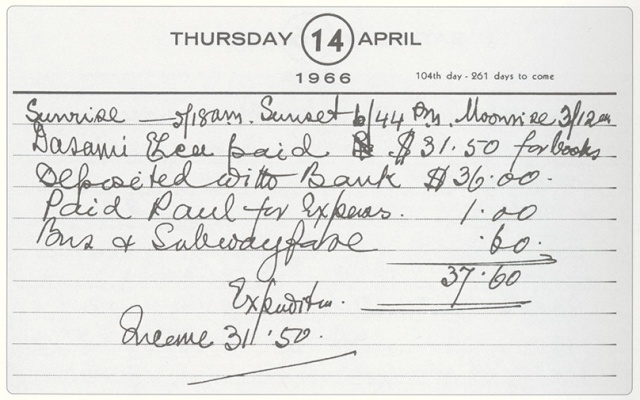 THURSDAY 14 APRIL
1966
104th day - 261 days to come
Sunrise — 5/18am. Sunset 6/44 Pm. Moonrise 3/12am
Dasami paid $31.50 for books
Deposited with Bank $36.00.
Paid Paul for Expenses. 1.00
Bus & Subwayfare .60.
37.60
Expenditure.
Income 31.50.